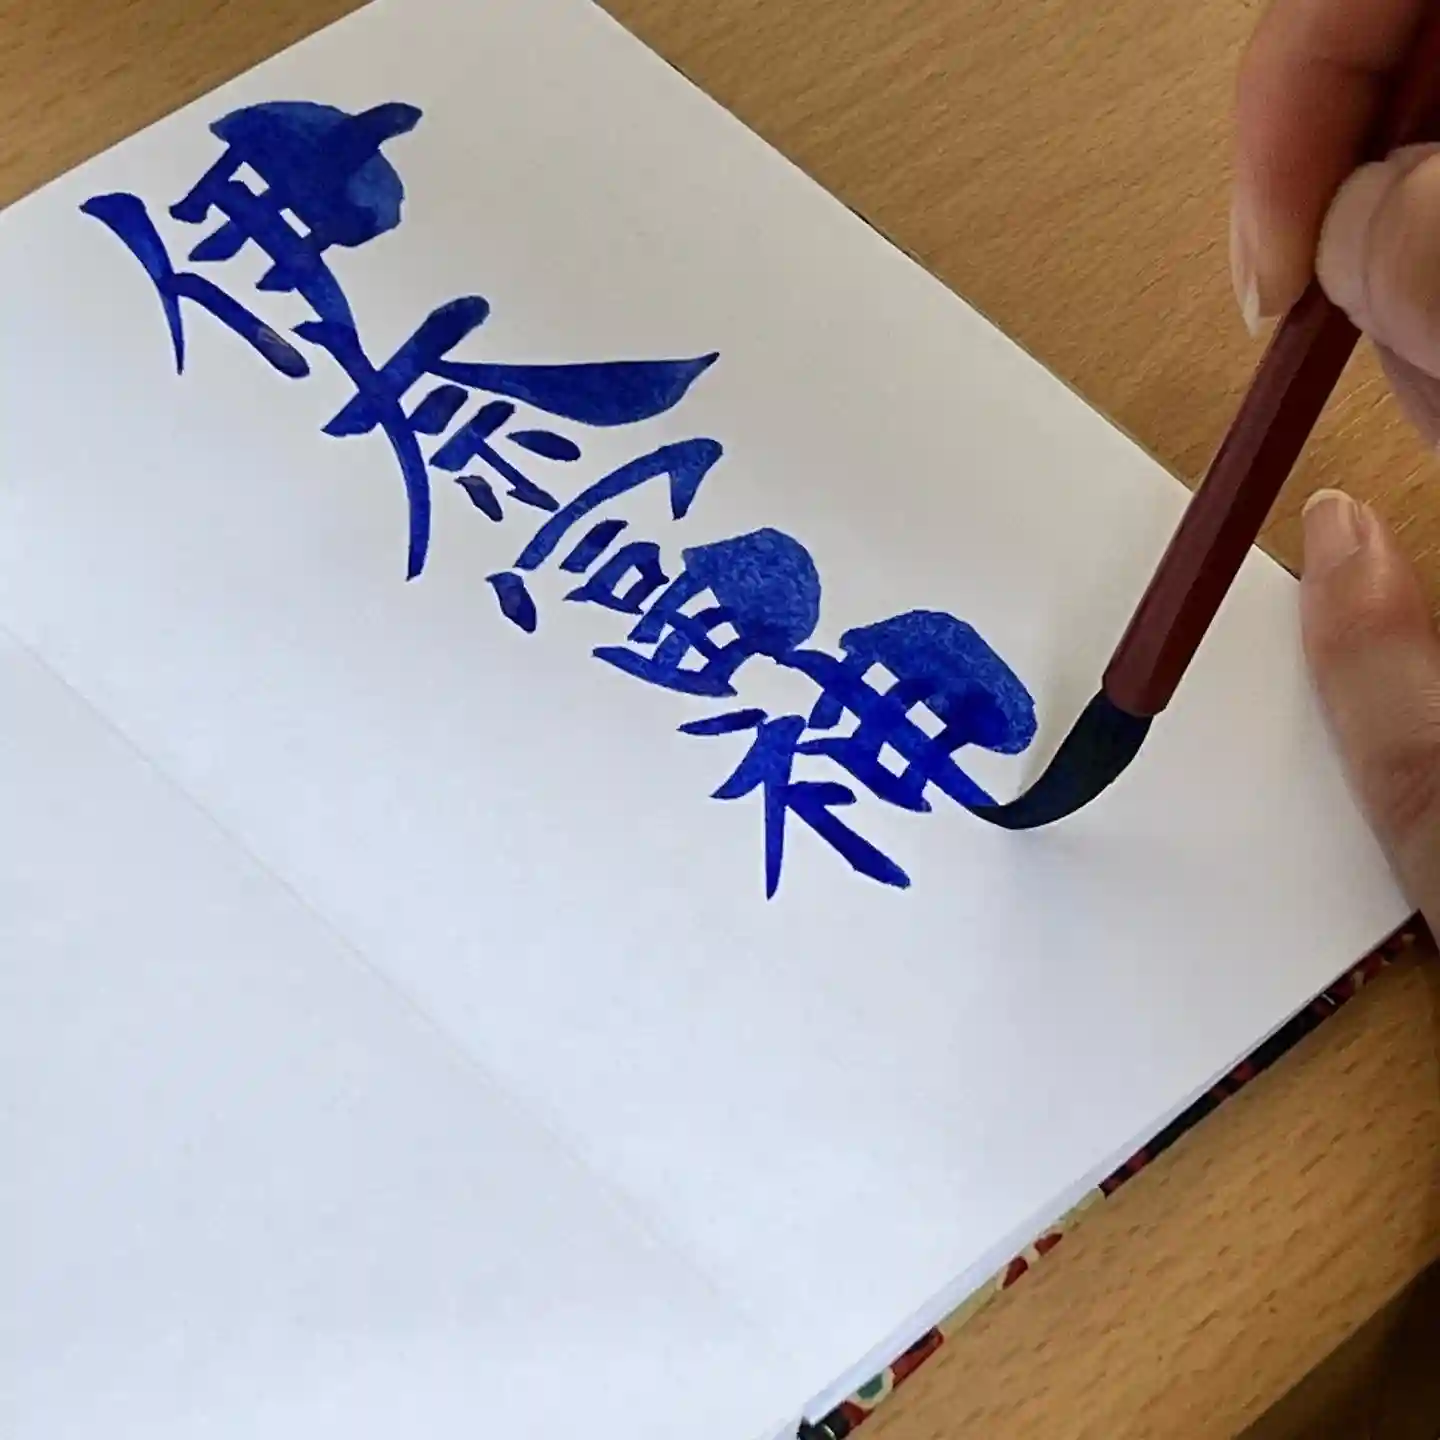 伊奈富神